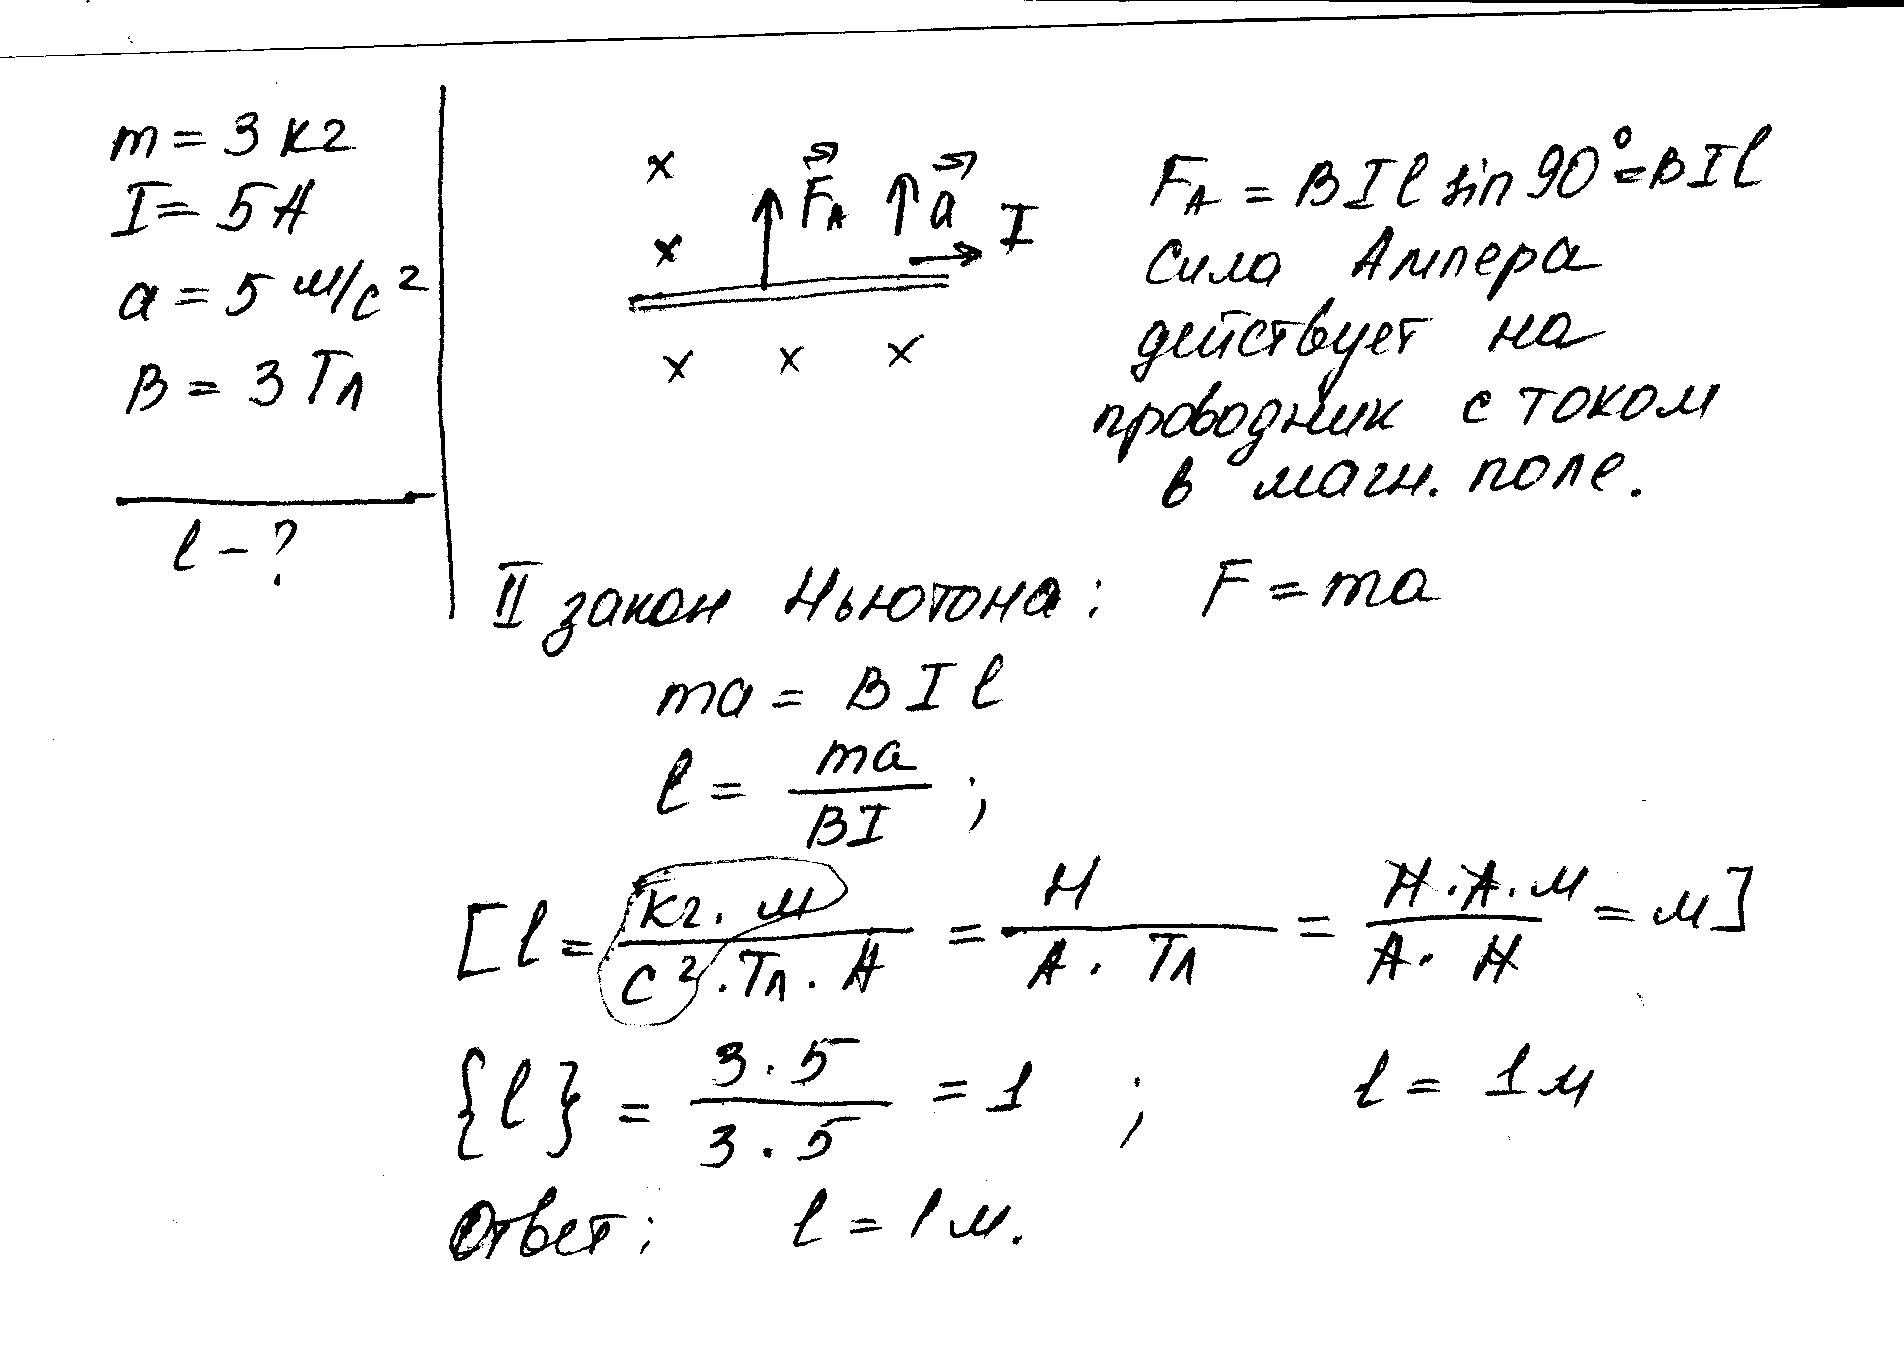 m = 3 кг
I = 5 А
a = 5 м/с²
B = 3 Тл
l - ?
x
x
x x x
F⃗А a⃗ I
FА = BIl sin 90° = BIl
Сила Ампера
действует на
проводник с током
в магн. поле.
II закон Ньютона: F = ma
ma = BIl
l = ma/BI ;
[l = кг·м/с²·Тл·А = Н/А·Тл = Н·А·м/А·Н = м]
{l} = 3·5/3·5 = 1 ; l = 1 м
Ответ: l = 1 м.